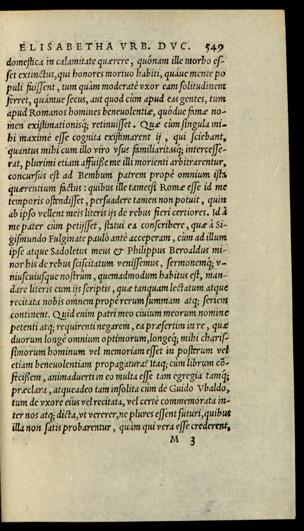 ELISABETHA VRB. DVC. 549
domestica in calamitate quærere, quónam ille morbo es-
set extinctus, qui honores mortuo habiti, quáue mente po
puli fuissent, tum quám moderatè vxor eam solitudinem
ferret, quámue secus, aut quod cùm apud eas gentes, tum
apud Romanos homines beneuolentiæ, quódue famæ no-
men existimationísq; retinuisset. Quæ cùm singula mi-
hi maximè esse cognita existimarent ij, qui sciebant,
quantus mihi cum illo viro vsus familiaritásq; intercesse-
rat, plurimi etiam affuisse me illi morienti arbitrarentur,
concursus est ad Bembum patrem propè omnium ista
quærentium factus: quibus ille tametsi Romæ esse id me
temporis ostendisset, persuadere tamen non potuit, quin
ab ipso vellent meis literis ijs de rebus fieri certiores. Id à
me pater cùm petijsset, statui ea conscribere, quæ à Si-
gismundo Fulginate paulò antè acceperam, cùm ad illum
ipse atque Sadoletus meus & Philippus Beroaldus mi-
nor his de rebus sciscitatum venissemus, sermonémq; v-
niuscuiusque nostrûm, quemadmodum habitus est, man-
dare literis cum ijs scriptis, quæ tanquam lectatum atque
recitata nobis omnem propè rerum summam atq; seriem
continent. Quid enim patri meo ciuium meorum nomine
petenti atq; requirenti negarem, ea præsertim in re, quæ
duorum longè omnium optimorum, longéq; mihi charis-
simorum hominum vel memoriam esset in posterum vel
etiam beneuolentiam propagatura? Itaq; cùm librum cō-
fecissem, animaduerti in eo multa esse tam egregia támq;
præclara, atqueadeo tam insolita cùm de Guido Vbaldo,
tum de vxore eius vel recitata, vel certè commemorata in-
ter nos atq; dicta, vt vererer, ne plures essent futuri, quibus
illa non satis probarentur, quàm qui vera esse crederent,
M 3